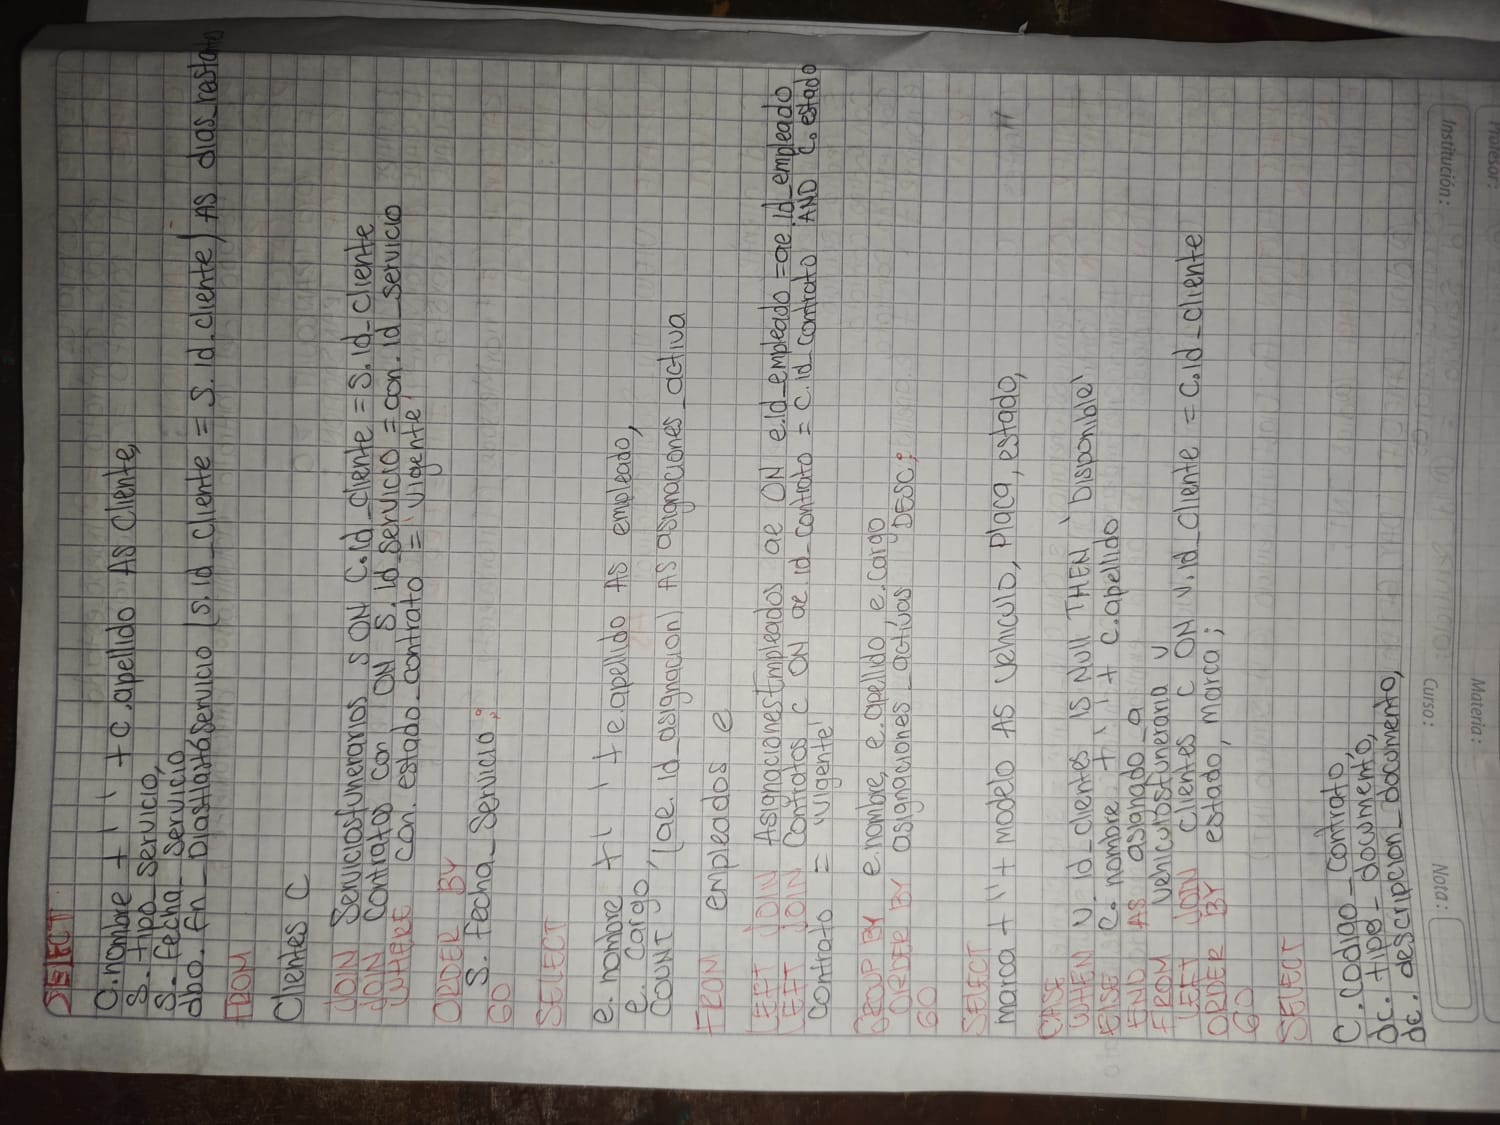 SELECT
C.nombre + ' ' + C.apellido AS Cliente,
S. tipo_servicio,
S. fecha_servicio
dbo. fn_DiasHastaServicio (s.id_cliente = s.id_cliente) AS dias_restantes
FROM
Clientes C
JOIN Serviciosfunerarios s ON C.id_cliente = s.id_cliente
JOIN Contratos con ON s.id_servicio = con.id_servicio
WHERE con.estado_contrato = 'vigente'
ORDER BY
S. fecha_servicio;
GO
SELECT
e. nombre + ' ' + e.apellido AS empleado,
e. cargo,
COUNT (ae. id_asignacion) AS asignaciones_activa
FROM empleados e
LEFT JOIN AsignacionesEmpleados ae ON e.id_empleado = ae.id_empleado
LEFT JOIN Contratos C ON ae id_contrato = c.id_contrato AND C. estado
contrato = 'vigente'
GROUP BY e.nombre, e.apellido, e.cargo
ORDER BY asignaciones_activas DESC;
GO
SELECT
marca + ' ' + modelo AS vehiculo, placa, estado,
CASE
WHEN v. id_clientes IS NUll THEN 'Disponible'
ElSE C. nombre + ' ' + c.apellido
END AS asignado_a
FROM vehiculosfuneraria v
LEFT JOIN Clientes C ON v.id_cliente = c.id_cliente
ORDER BY estado, marca;
GO
SELECT
C. codigo_contrato,
dc. tipo_documento,
dc. descripcion_documento,
Nota:
Curso:
Institución:
Materia:
Profesor: